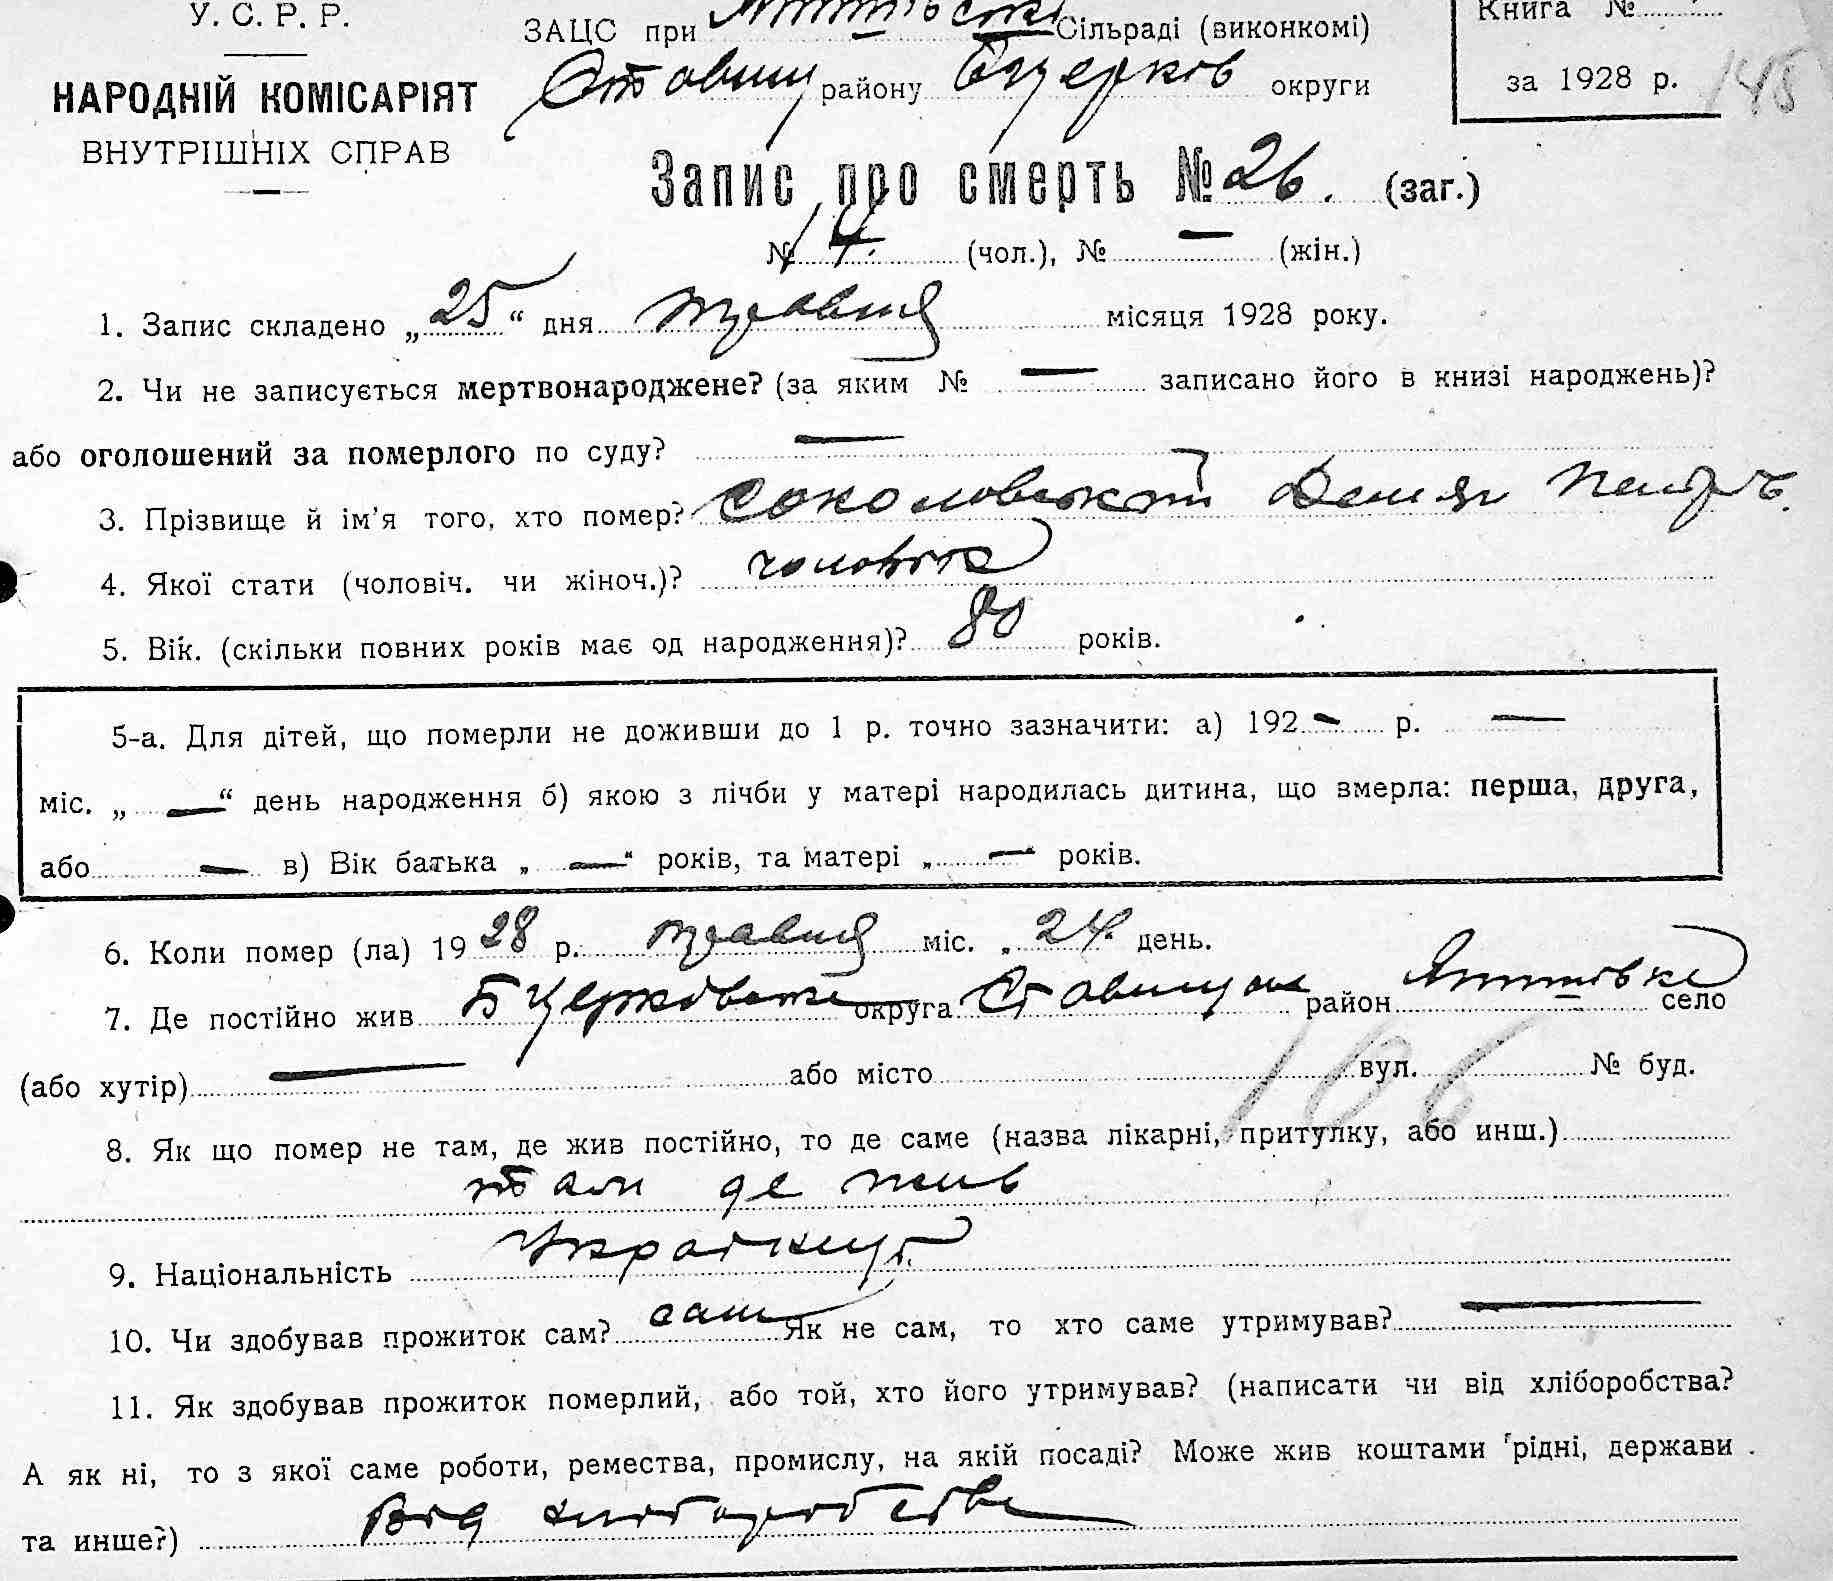 У. С. Р. Р.
НАРОДНІЙ КОМІСАРІЯТ
ВНУТРІШНІХ СПРАВ
ЗАЦС при Сільраді (виконкомі)
Ставищ району Б церков округи
Книга №
за 1928 р. 145
Запис про смерть № 26. (заг.)
№ 14. (чол.), № — (жін.)
1. Запис складено „25“ дня травня місяця 1928 року.
2. Чи не записується мертвонароджене? (за яким № — записано його в книзі народжень)?
або оголошений за померлого по суду? —
3. Прізвище й ім'я того, хто помер? Соколовський Демян Петр
4. Якої стати (чоловіч. чи жіноч.)? чоловіка
5. Вік. (скільки повних років має од народження)? 80 років.
5-а. Для дітей, що померли не доживши до 1 р. точно зазначити: а) 192 — р. —
міс. „ — “ день народження б) якою з лічби у матері народилась дитина, що вмерла: перша, друга,
або — в) Вік батька „ — “ років, та матері „ — “ років.
6. Коли помер (ла) 1928 р. травня міс. 24. день.
7. Де постійно жив Б церковська округа Ставищан район Яттівка село
(або хутір) — або місто вул. № буд.
106
8. Як що помер не там, де жив постійно, то де саме (назва лікарні, притулку, або инш.)
там де жив
9. Національність Украинец
10. Чи здобував прожиток сам? сам Як не сам, то хто саме утримував? —
11. Як здобував прожиток померлий, або той, хто його утримував? (написати чи від хліборобства?
А як ні, то з якої саме роботи, ремества, промислу, на якій посаді? Може жив коштами рідні, держави
та инше?) Від хліборобства